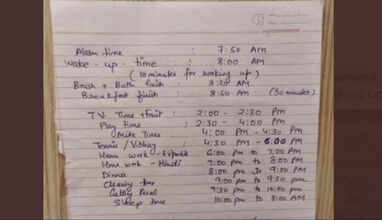 Alarm time : 7:50 Am
Wake-up time : 8:00 AM
(10 minutes for waking up)
Brush & Bath finish : 8:20 AM
Breakfast finish : 8:50 AM (30 minutes)
T.V Time start : 2:00 - 2:30 Pm
Play time : 2:30 - 4:00 Pm
Milk Time : 4:00 Pm - 4:30 Pm
Tennis / : 4:30 PM - 6:00 PM
Home work - : 6:00 PM to 7:00 Pm
Home work - Hindi : 7:00 pm to 8:00 Pm
Dinner : 8:00 pm to 9:00 Pm
Cleaning time : 9:00 pm to 9:30 pm
: 9:30 pm to 10:00 pm
Sleep time : 10:00 pm to 8:00 AM